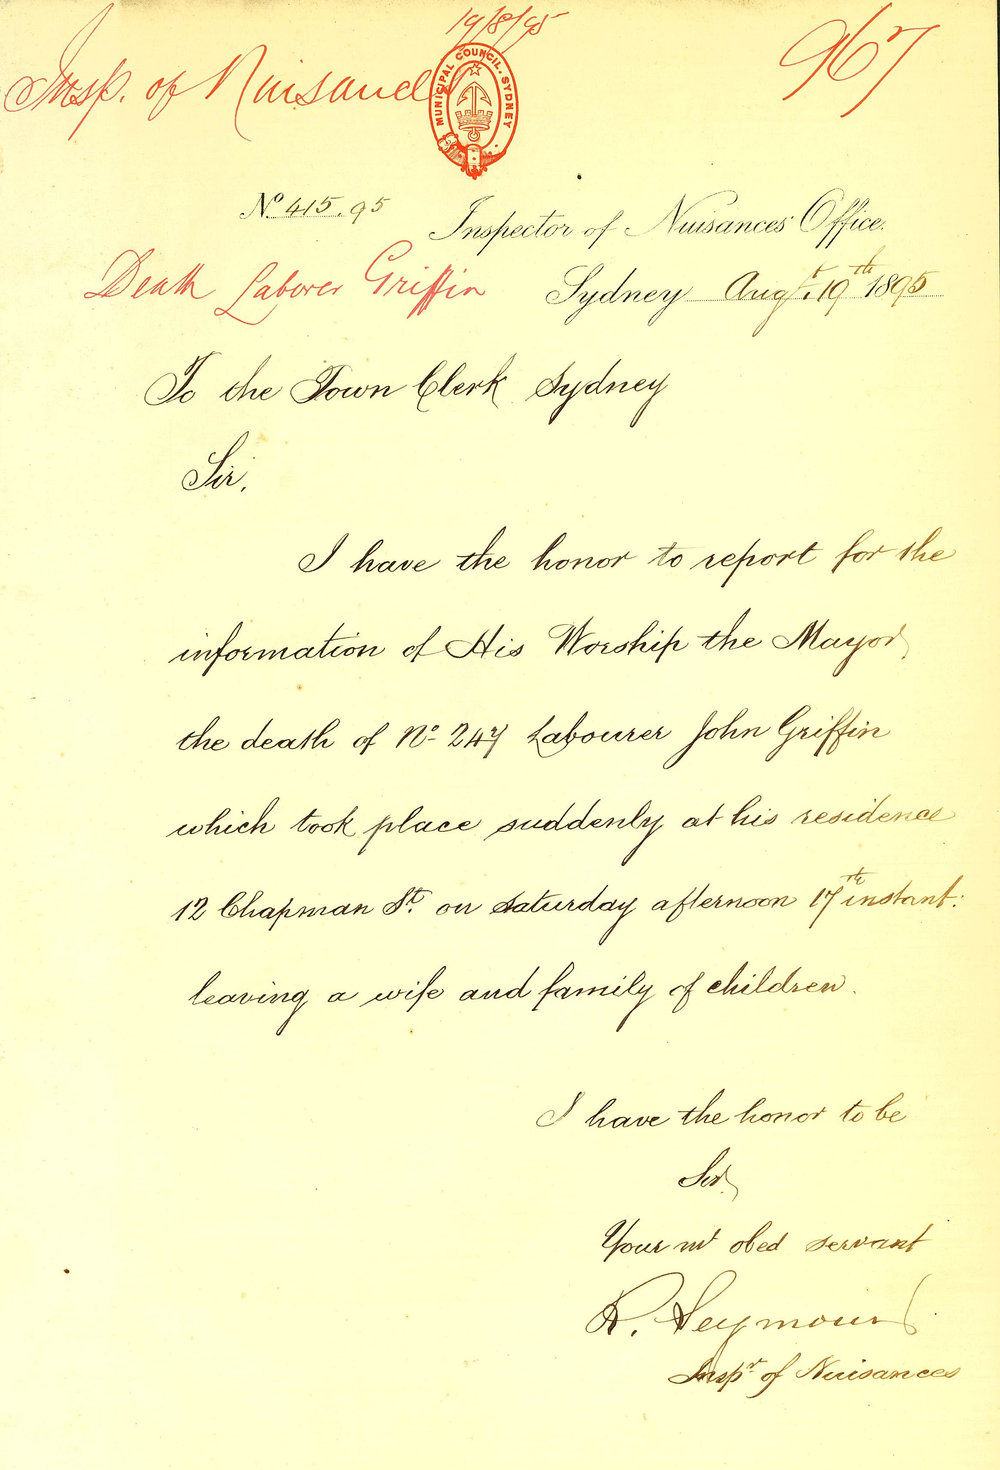 19/8/95
Insp. of Nuisances
967
MUNICIPAL COUNCIL. SYDNEY
No. 415.95
Inspector of Nuisances' Office.
Death Laborer Griffin
Sydney Augt. 19th 1895
To the Town Clerk Sydney
Sir,
I have the honor to report for the
information of His Worship the Mayor,
the death of No. 247 Labourer John Griffin
which took place suddenly at his residence
12 Chapman St. on Saturday afternoon 17th instant.
leaving a wife and family of children.
I have the honor to be
Sir,
Your mt obed servant
R. Seymour
Inspr of Nuisances